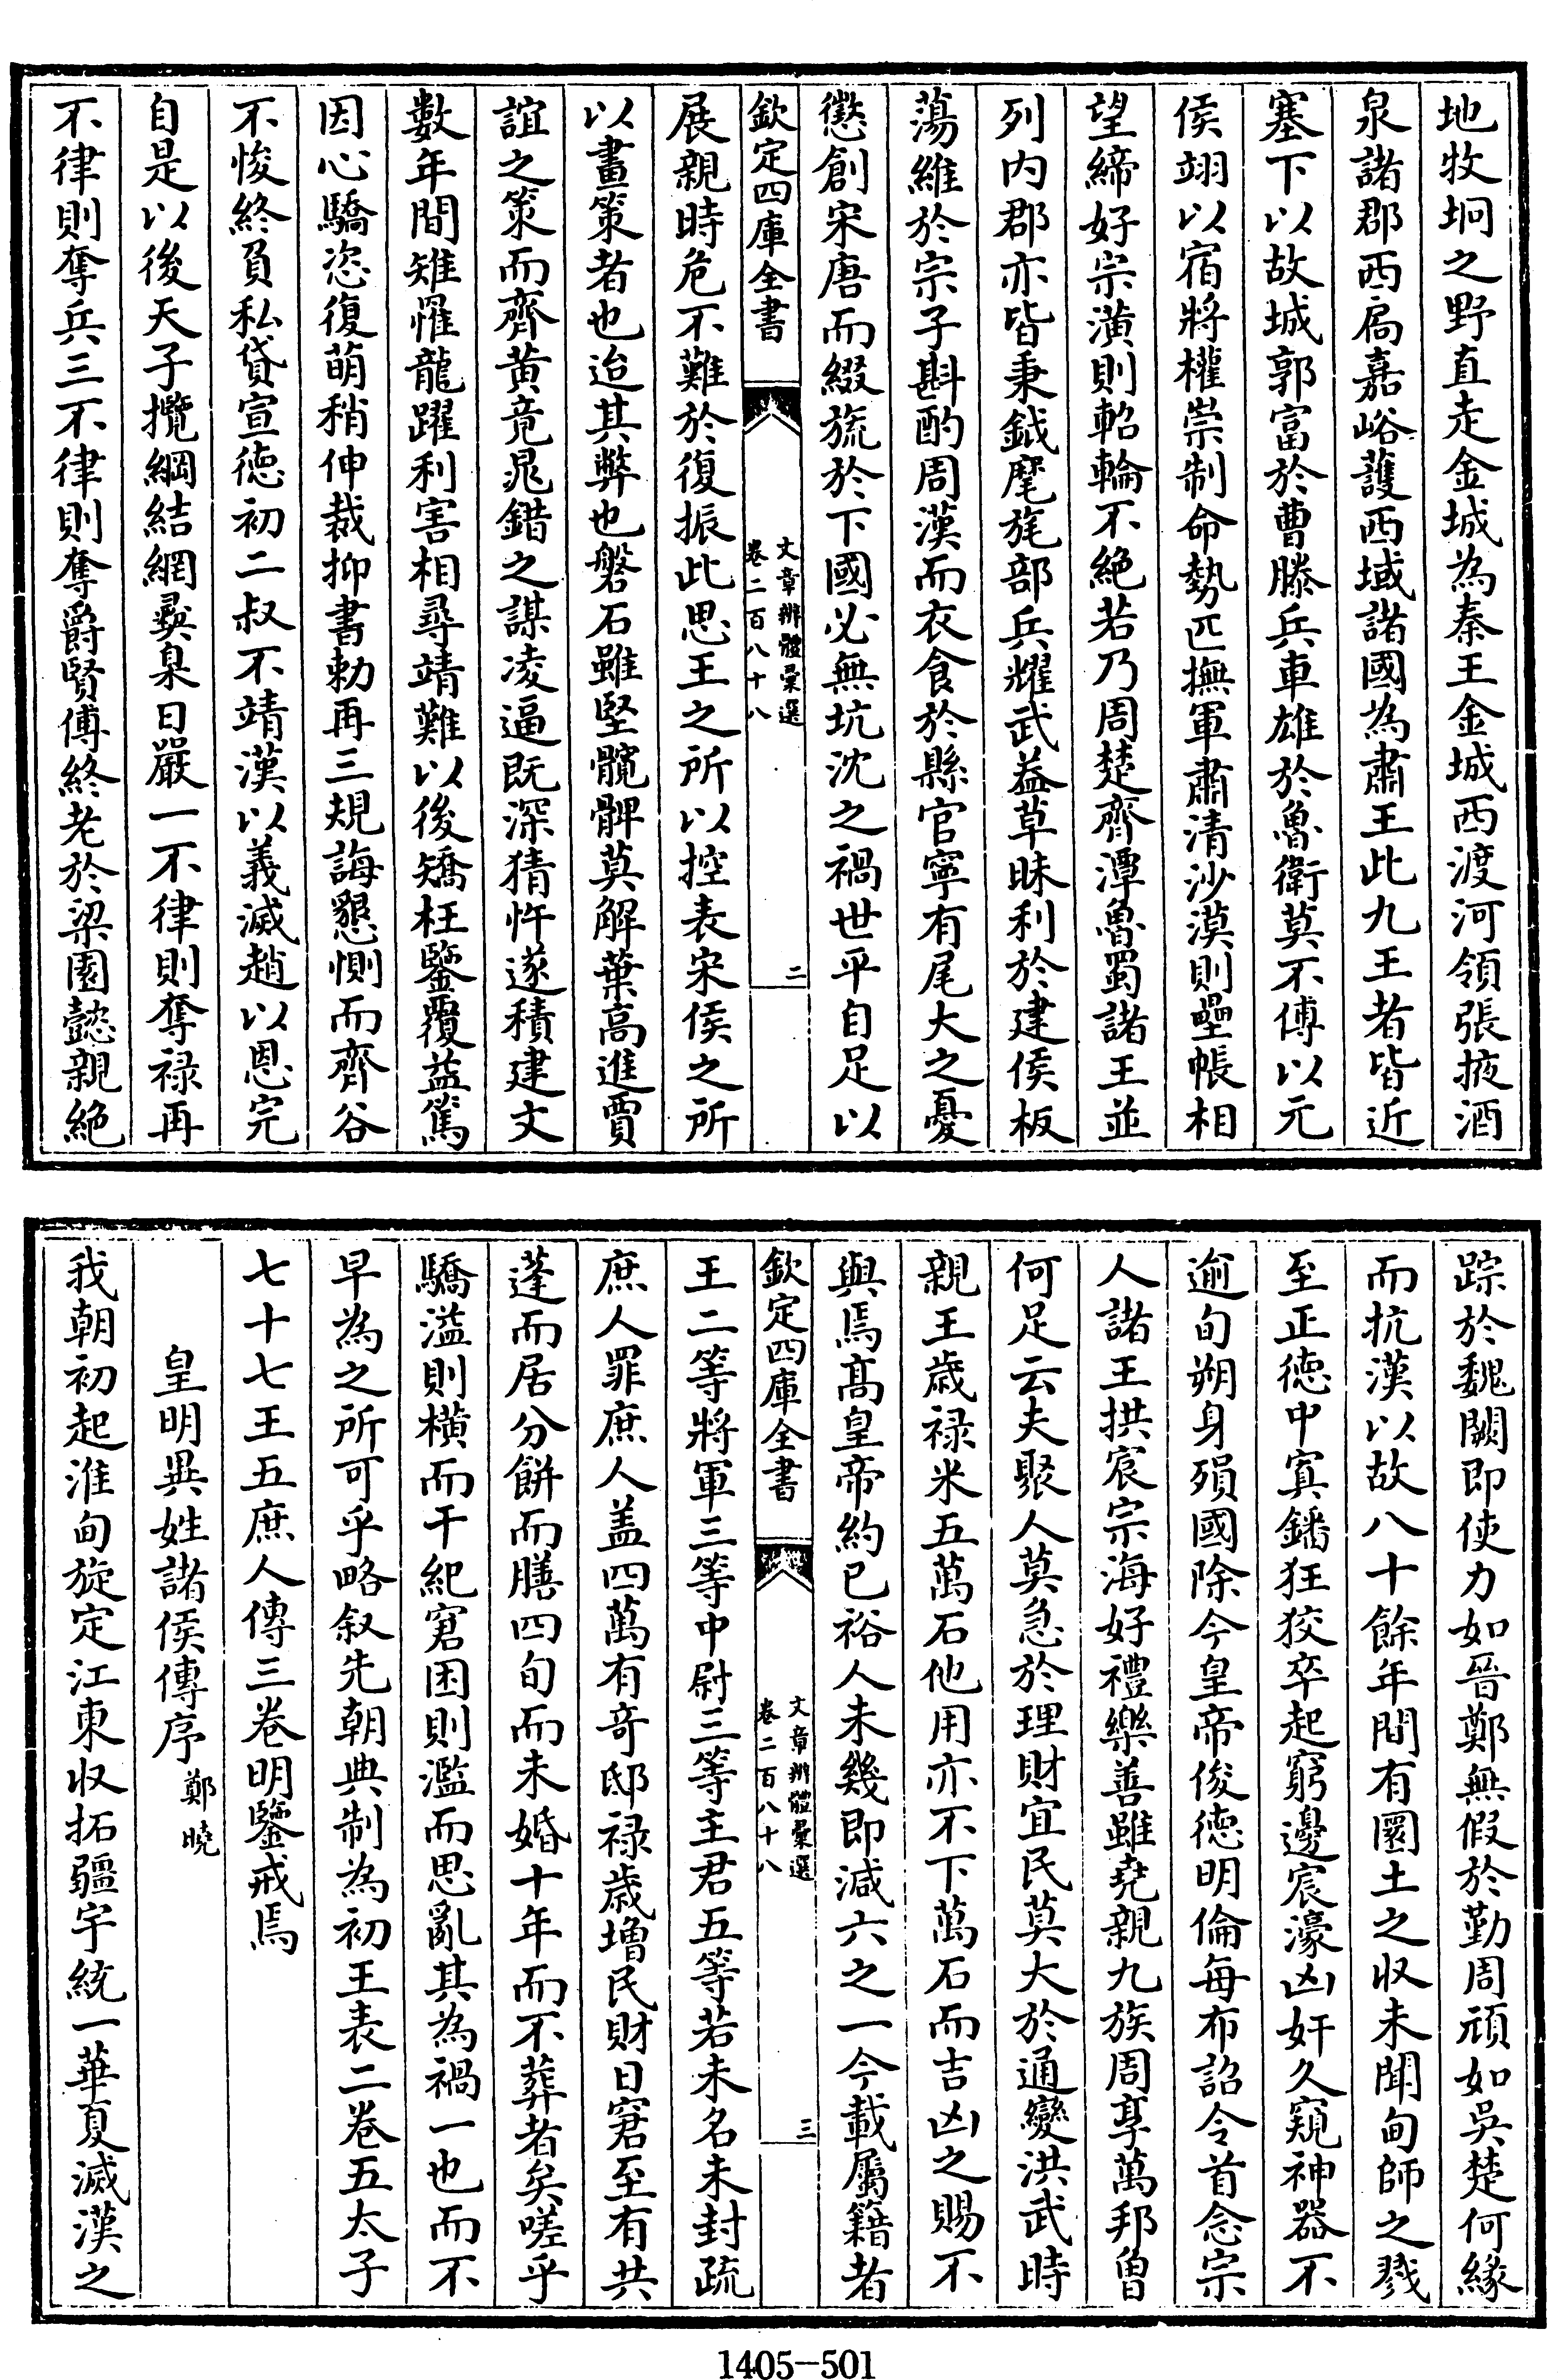 地牧坰之野直走金城為秦王金城西渡河領張掖酒
泉諸郡西扄嘉峪䕶西域諸國為肅王此九王者皆近
塞下以故城郭富於曹滕兵車雄於魯衛莫不傅以元
侯翊以宿將權崇制命勢匹撫軍肅清沙漠則壘帳相
望締好宗潢則軺輪不絶若乃周楚齊潭魯蜀諸王並
列内郡亦皆秉鉞麾旄部兵耀武益草昧利於建侯板
蕩維於宗子斟酌周漢而衣食於縣官寧有尾大之憂
懲創宋唐而綴旒於下國必無坑沈之禍世平自足以
欽定四庫全書
文章辨體彚選
卷二百八十八
二
展親時危不難於復振此思王之所以控表宋侯之所
以畫策者也迨其弊也磐石雖堅髖髀莫解葉高進賈
誼之策而齊黄竟晁錯之謀凌逼既深猜忤遂積建文
數年間雉罹龍躍利害相尋靖難以後矯枉鑒覆益篤
因心驕恣復萌稍伸裁抑書勅再三規誨懇惻而齊谷
不悛終負私貸宣徳初二叔不靖漢以義滅趙以恩完
自是以後天子攬綱結網彛臬日嚴一不律則奪禄再
不律則奪兵三不律則奪爵賢傅終老於梁園懿親絶
踪於魏闕即使力如晉鄭無假於勤周頑如吳楚何緣
而抗漢以故八十餘年間有圜土之収未聞甸師之戮
至正徳中寘鐇狂狡卒起窮邊宸濠凶奸久窺神器不
逾旬朔身殞國除今皇帝俊徳明倫每布詔令首念宗
人諸王拱宸宗海好禮樂善雖堯親九族周享萬邦曽
何足云夫聚人莫急於理財宜民莫大於通變洪武時
親王歳禄米五萬石他用亦不下萬石而吉凶之賜不
與焉髙皇帝約已裕人未幾即減六之一今載屬籍者
欽定四庫全書
文章辨體彚選
卷二百八十八
三
王二等將軍三等中尉三等主君五等若未名未封疏
庶人罪庶人盖四萬有竒邸禄歳增民財日窘至有共
蓬而居分餅而膳四旬而未婚十年而不葬者矣嗟乎
驕溢則横而干紀窘困則濫而思亂其為禍一也而不
早為之所可乎略叙先朝典制為初王表二巻五太子
七十七王五庶人傳三巻明鑒戒焉
皇明異姓諸侯傳序 鄭曉
我朝初起淮甸旋定江東収拓疆宇統一華夏滅漢之
1405-501